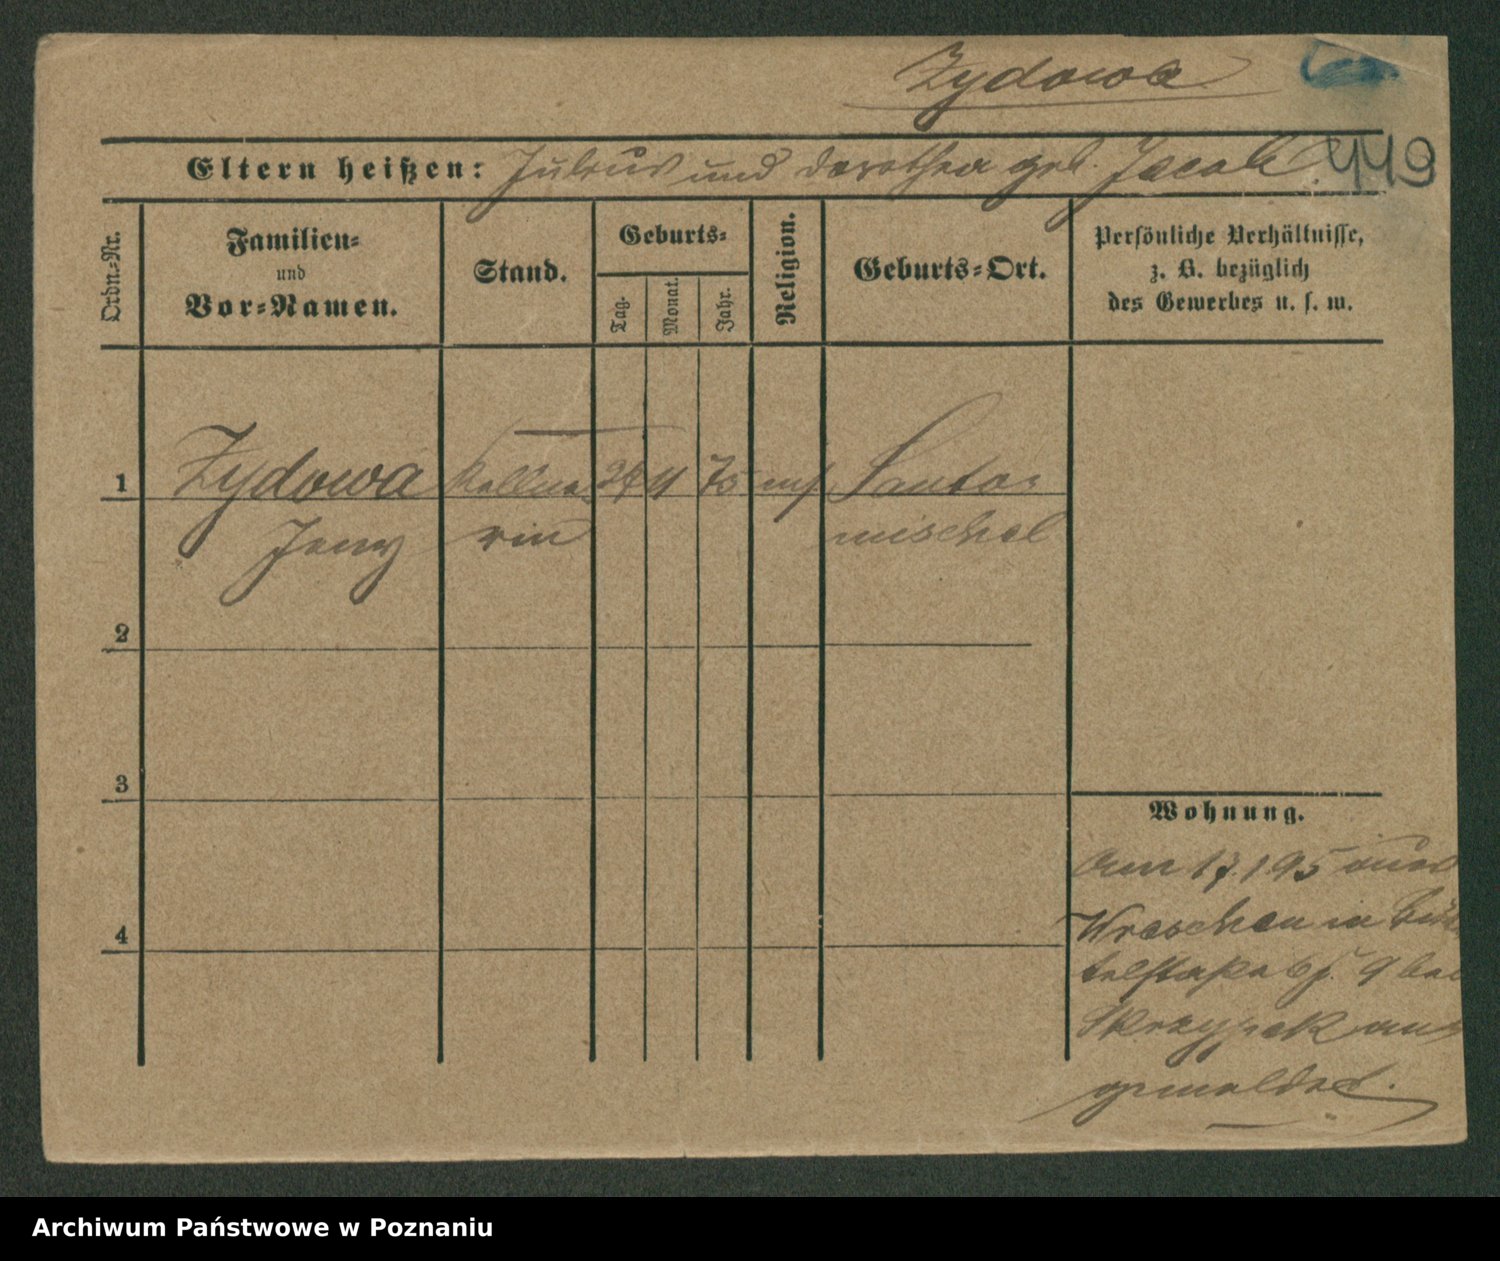 Zydowa
Eltern heißen: Julius und Dorothea geb. Jacob. 449
Ordn.-Nr.
Familien-
und
Vor-Namen.
Stand.
Geburts-
Tag.
Monat.
Jahr.
Religion.
Geburts-Ort.
Persönliche Verhältnisse,
z. B. bezüglich
des Gewerbes u. s. w.
1 Zydowa Kellne- 24 4 75 Santo-
Jeny rin mischel
2
3
4
Wohnung.
Am 17.1.95 aus
Wreschen in
9 bei
Skrzypek an-
gemeldet.
Archiwum Państwowe w Poznaniu